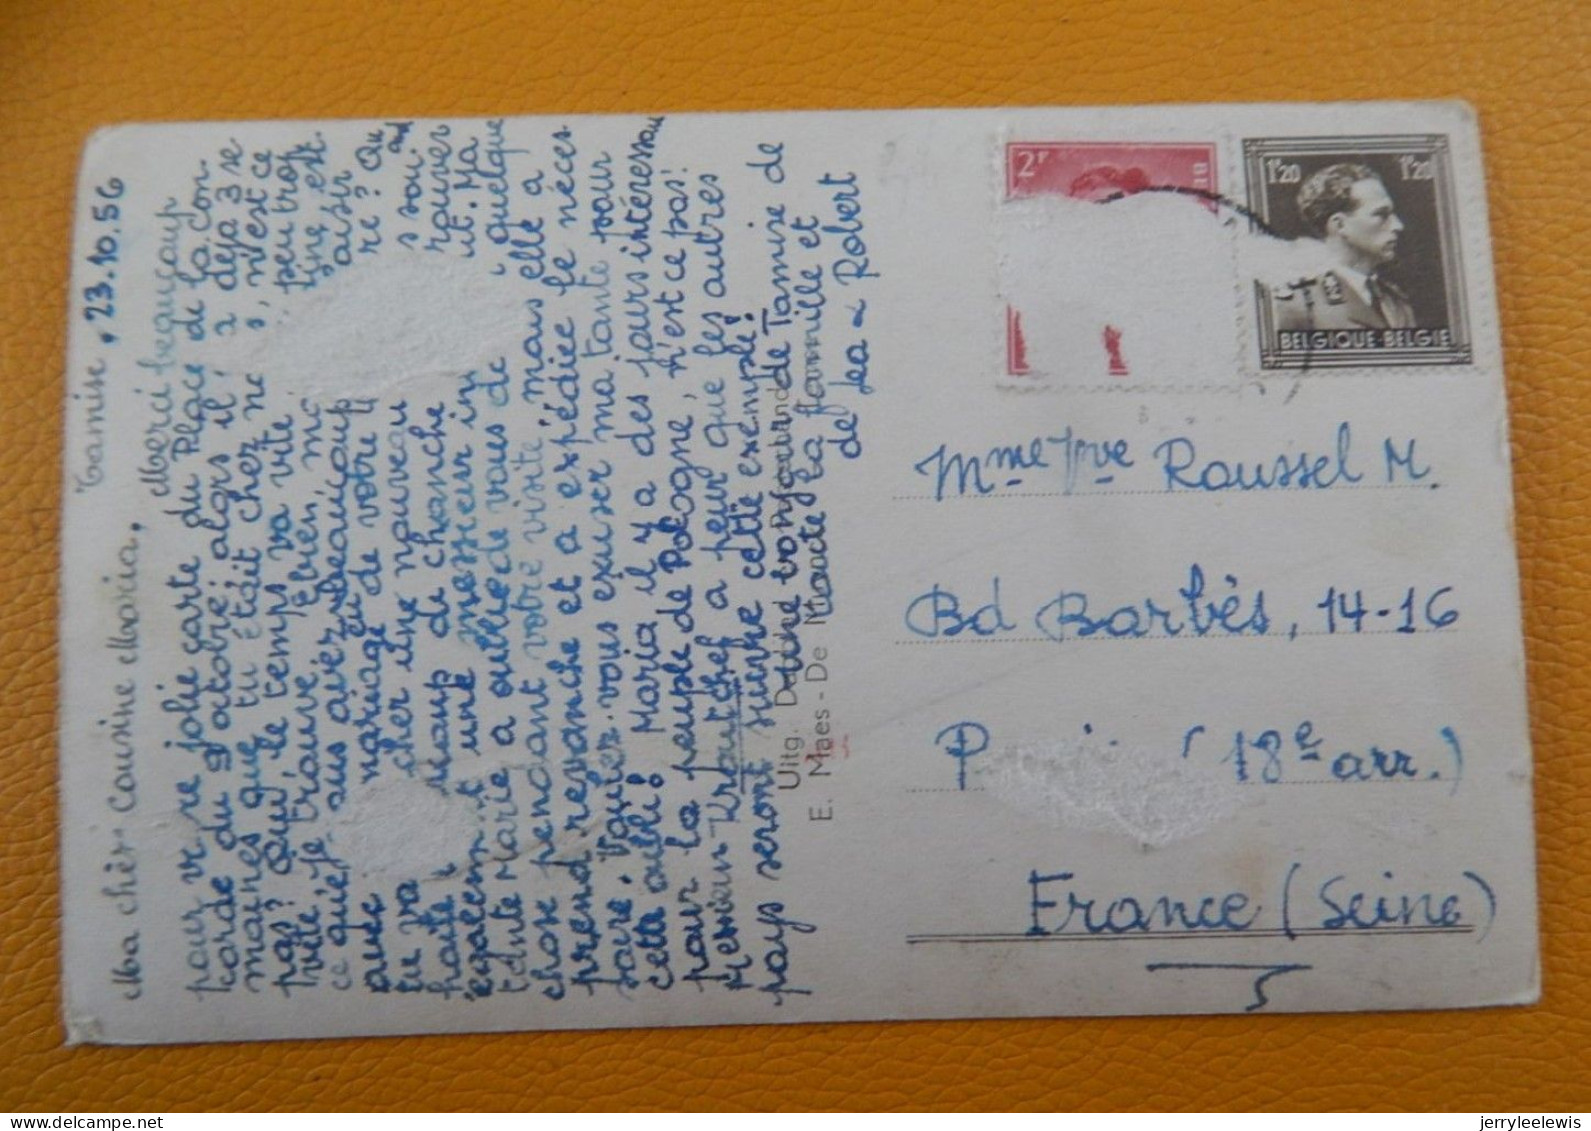 Tamise, 23.10.56
Ma chère cousine Maria, Merci beaucoup
pour vre jolie carte du Place de la Con-
corde du 9 octobre, alors il a déjà 3 se
maines que tu était chez no s, n'est ce
pas? Oui le temps va vite peu trop
vite, je trouve! Ébien, mo
ce que aus avez beaucoup aisir
avec mariage de votre re? Ou
tu va cher une nouveau s sou and
haite coup de chanche rouver
égalecment une messieur in ut. Ma
tante Marie a oublié de vous de quelque
chose pendant votre visite, mais elle a
prend revanche et a expédiée le néces
saire. Vouler-vous exuser ma tante pour
cette oubli! Maria il y a des jours intéressau
pour la peuple de Pologne, n'est ce pas!
Mersieur Kroutchef a peur que les autres
pays seront suivre cette exemple!
une bonjour de Tamise de
toute la famille et
de Lea & Robert
Uitg. Dagblad
E. Maes - De M
2F
1F20 1F20
BELGIQUE-BELGIE
Mme Vve Roussel M.
Bd Barbès, 14-16
P (18e arr.)
France (Seine)
jerryleelewis